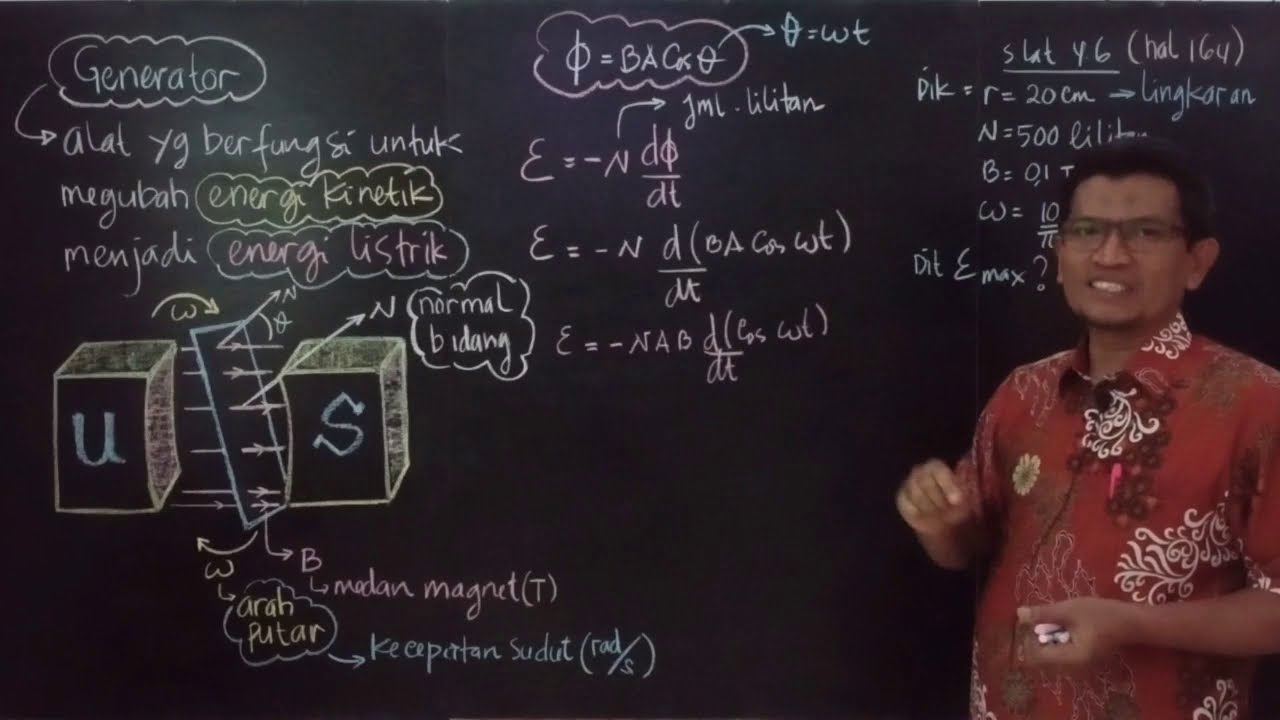 Generator
alat yg berfungsi untuk
megubah energi kinetik
menjadi energi listrik
ω
N
θ
N
normal
bidang
U
S
ω
B
medan magnet (T)
arah
putar
kecepatan sudut (rad/s)
ϕ = BA Cos θ
θ = ωt
jml. lilitan
ε = -N dϕ/dt
ε = -N d/dt (BA Cos ωt)
ε = -NAB d/dt (Cos ωt)
(hal 164)
Dik = r = 20 cm → lingkaran
N = 500
B = 0,1
ω = 10/π
Dit ε max ?